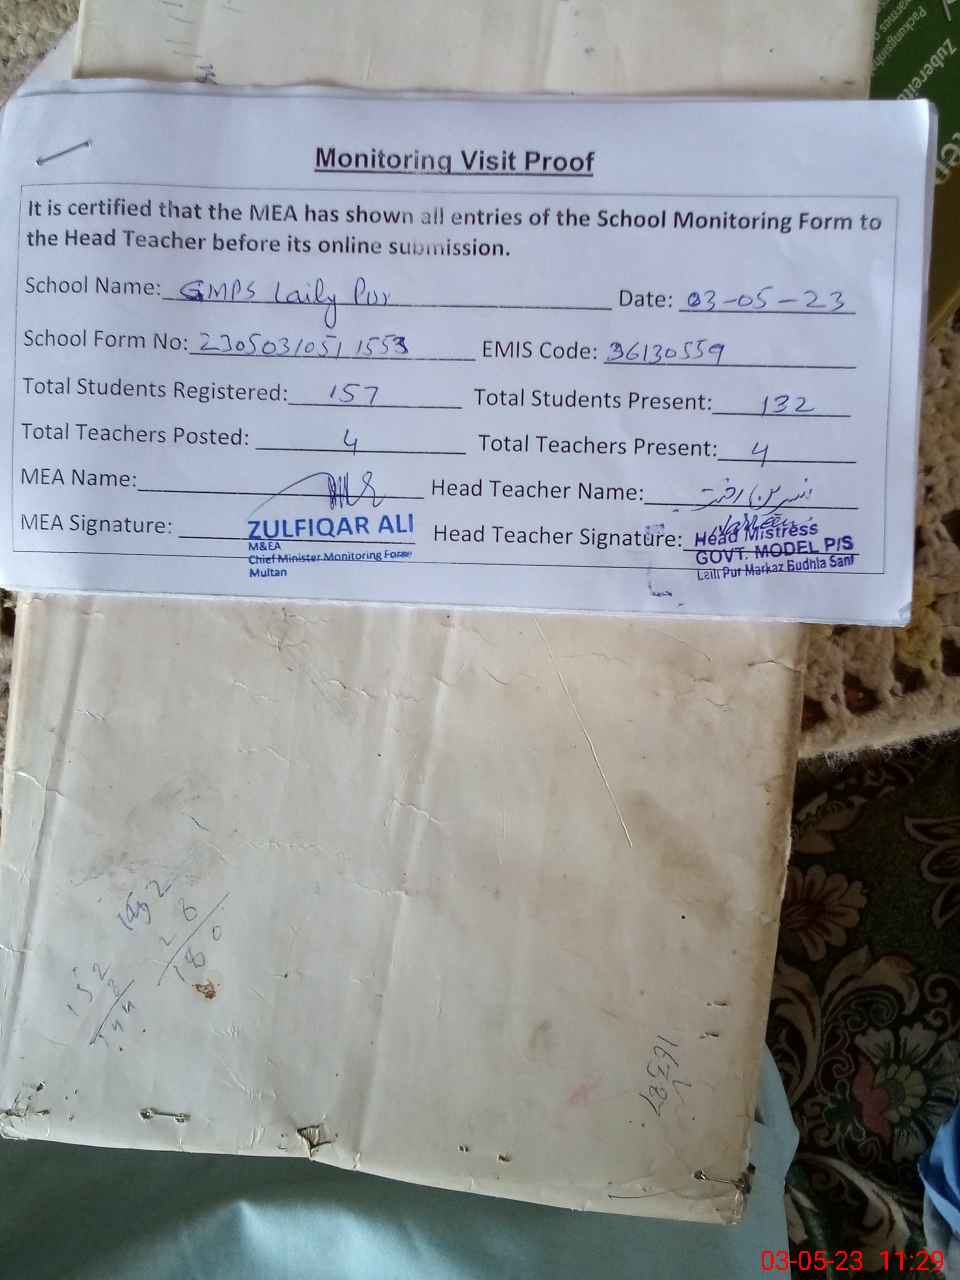 Monitoring Visit Proof
It is certified that the MEA has shown all entries of the School Monitoring Form to
the Head Teacher before its online submission.
School Name: GMPS Laily Pur Date: 03-05-23
School Form No: 2305031051 1553 EMIS Code: 36130559
Total Students Registered: 157 Total Students Present: 132
Total Teachers Posted: 4 Total Teachers Present: 4
MEA Name: Head Teacher Name:
MEA Signature: Head Teacher Signature:
ZULFIQAR ALI
M&EA
Chief Minister Monitoring Force
Multan
Head Mistress
GOVT. MODEL P/S
Laili Pur Markaz Budhla Sant
Zubereitu
152
8
28
180
03-05-23 11:29